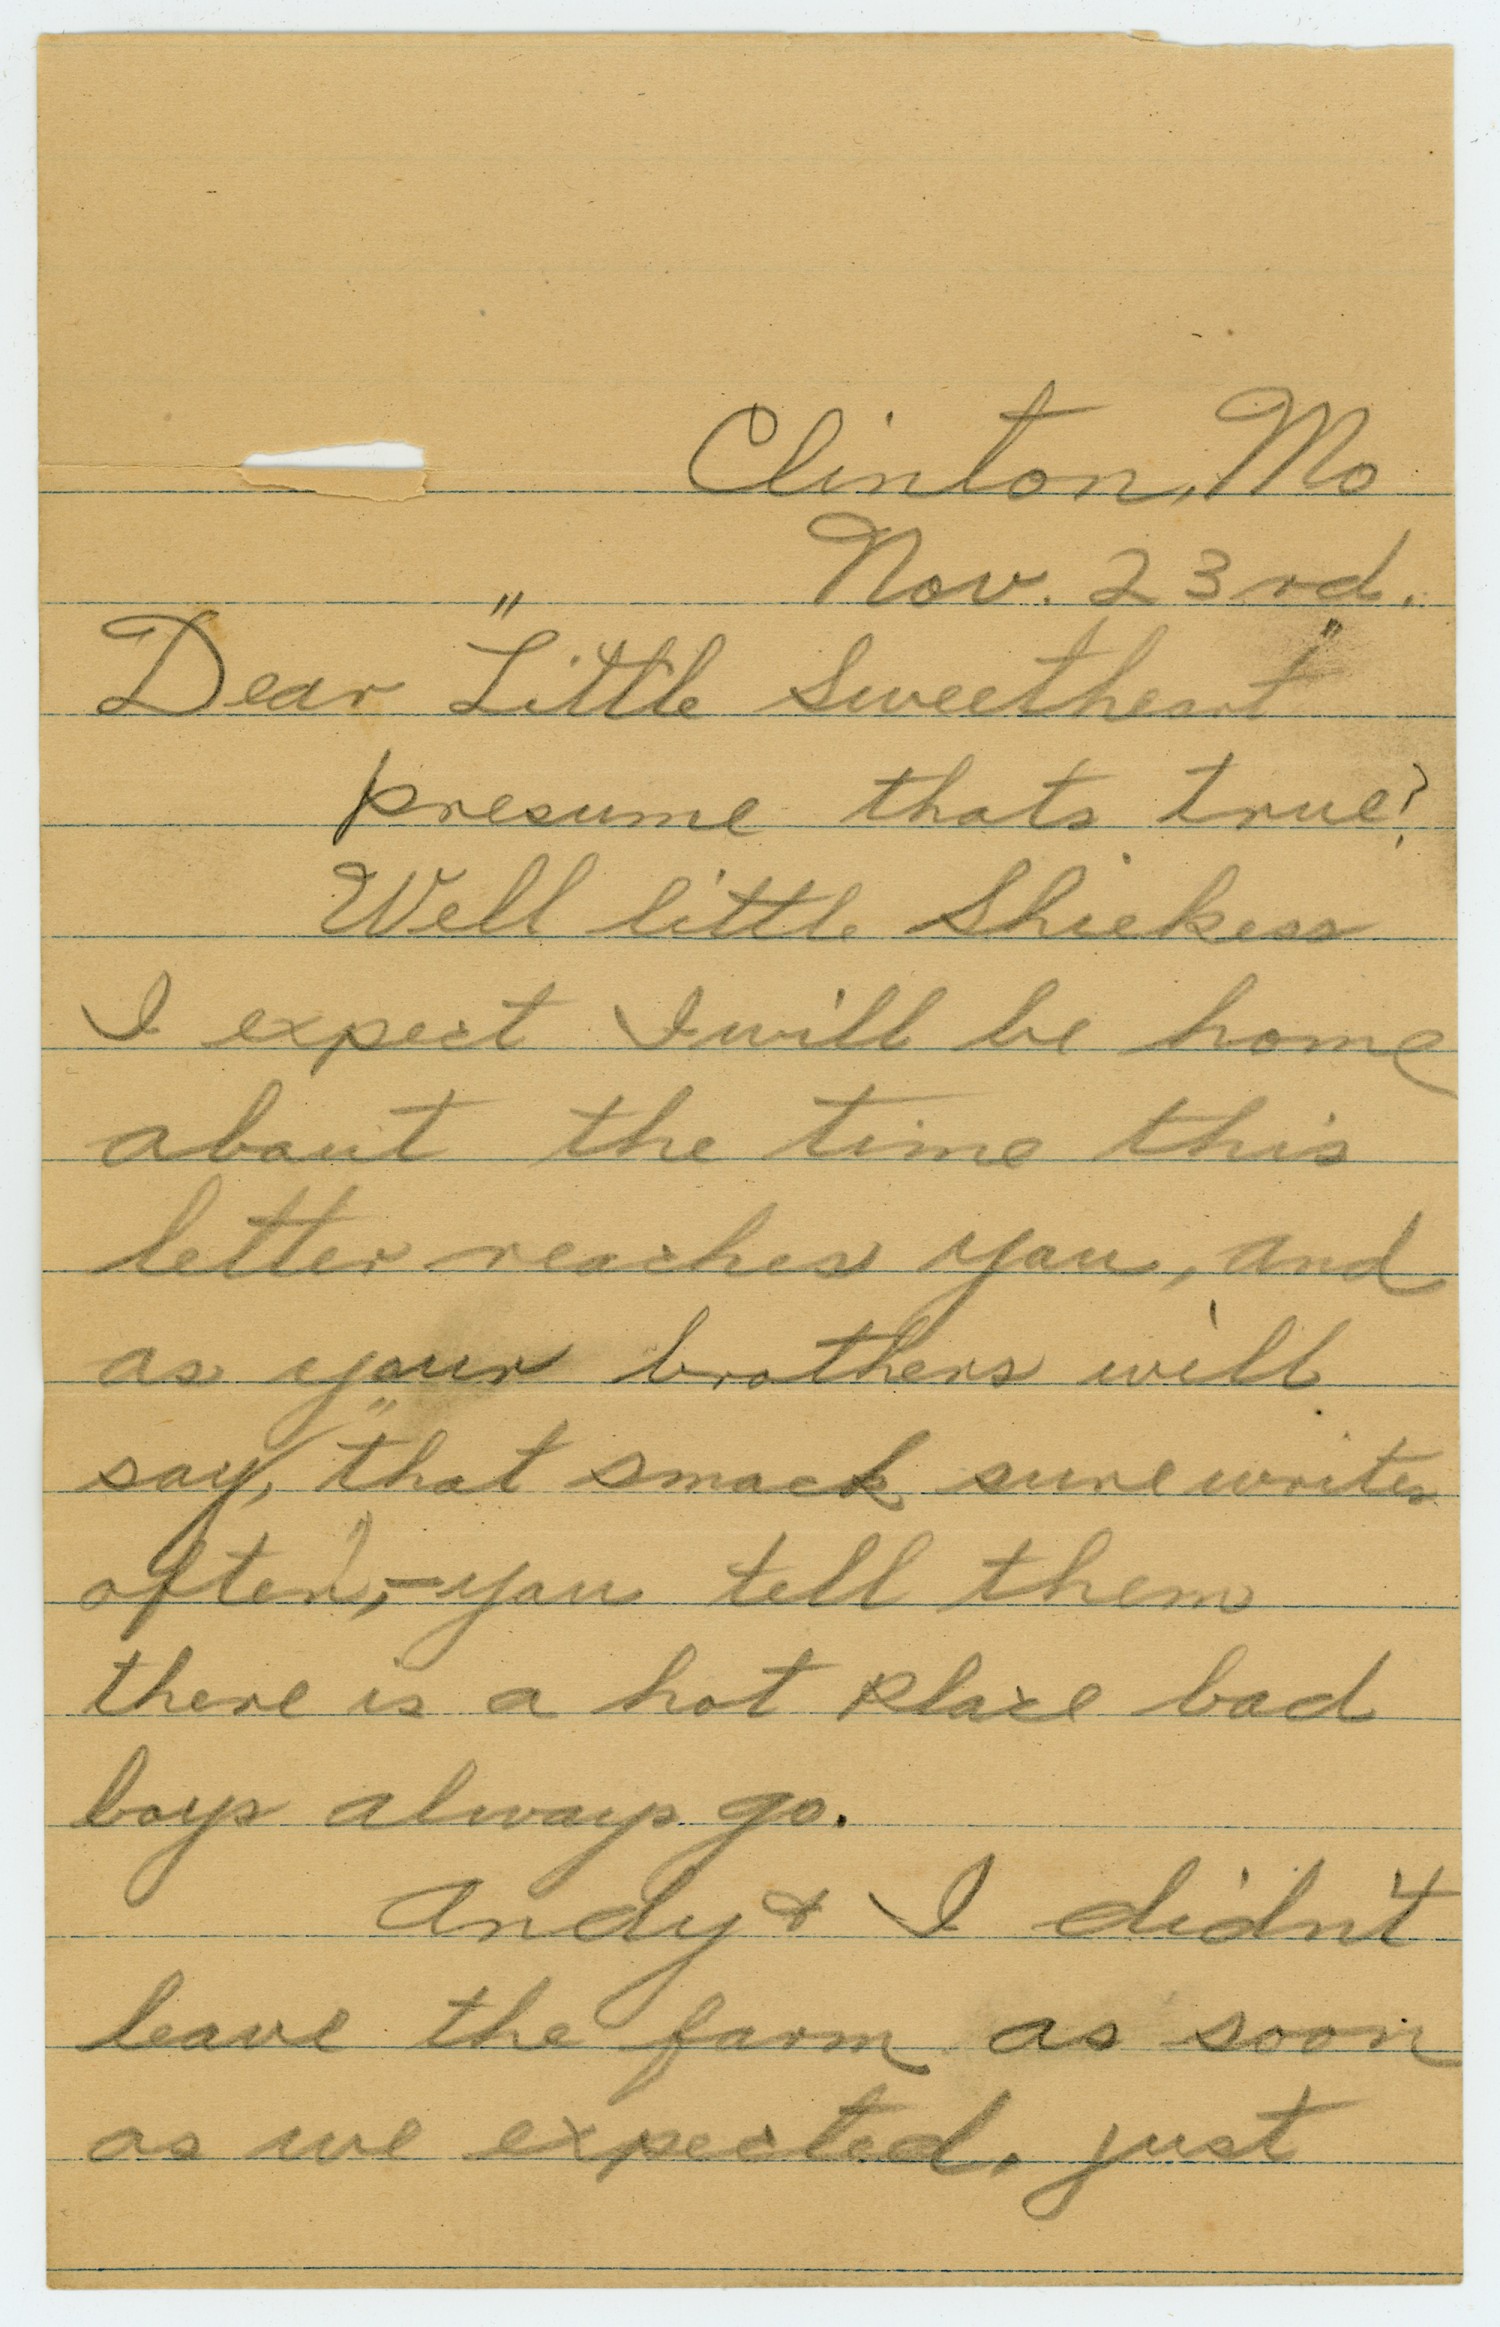 Clinton, Mo
Nov. 23rd.
Dear "Little Sweetheart"
presume thats true?
Well little Shiekess
I expect I will be home
about the time this
letter reaches you, and
as your brothers will
say, "that smack sure writes
often", - you tell them
there is a hot place bad
boys always go.
Andy & I didn't
leave the farm as soon
as we expected, just